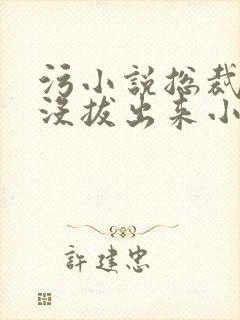 污小说总裁
没拔出来小
許建忠